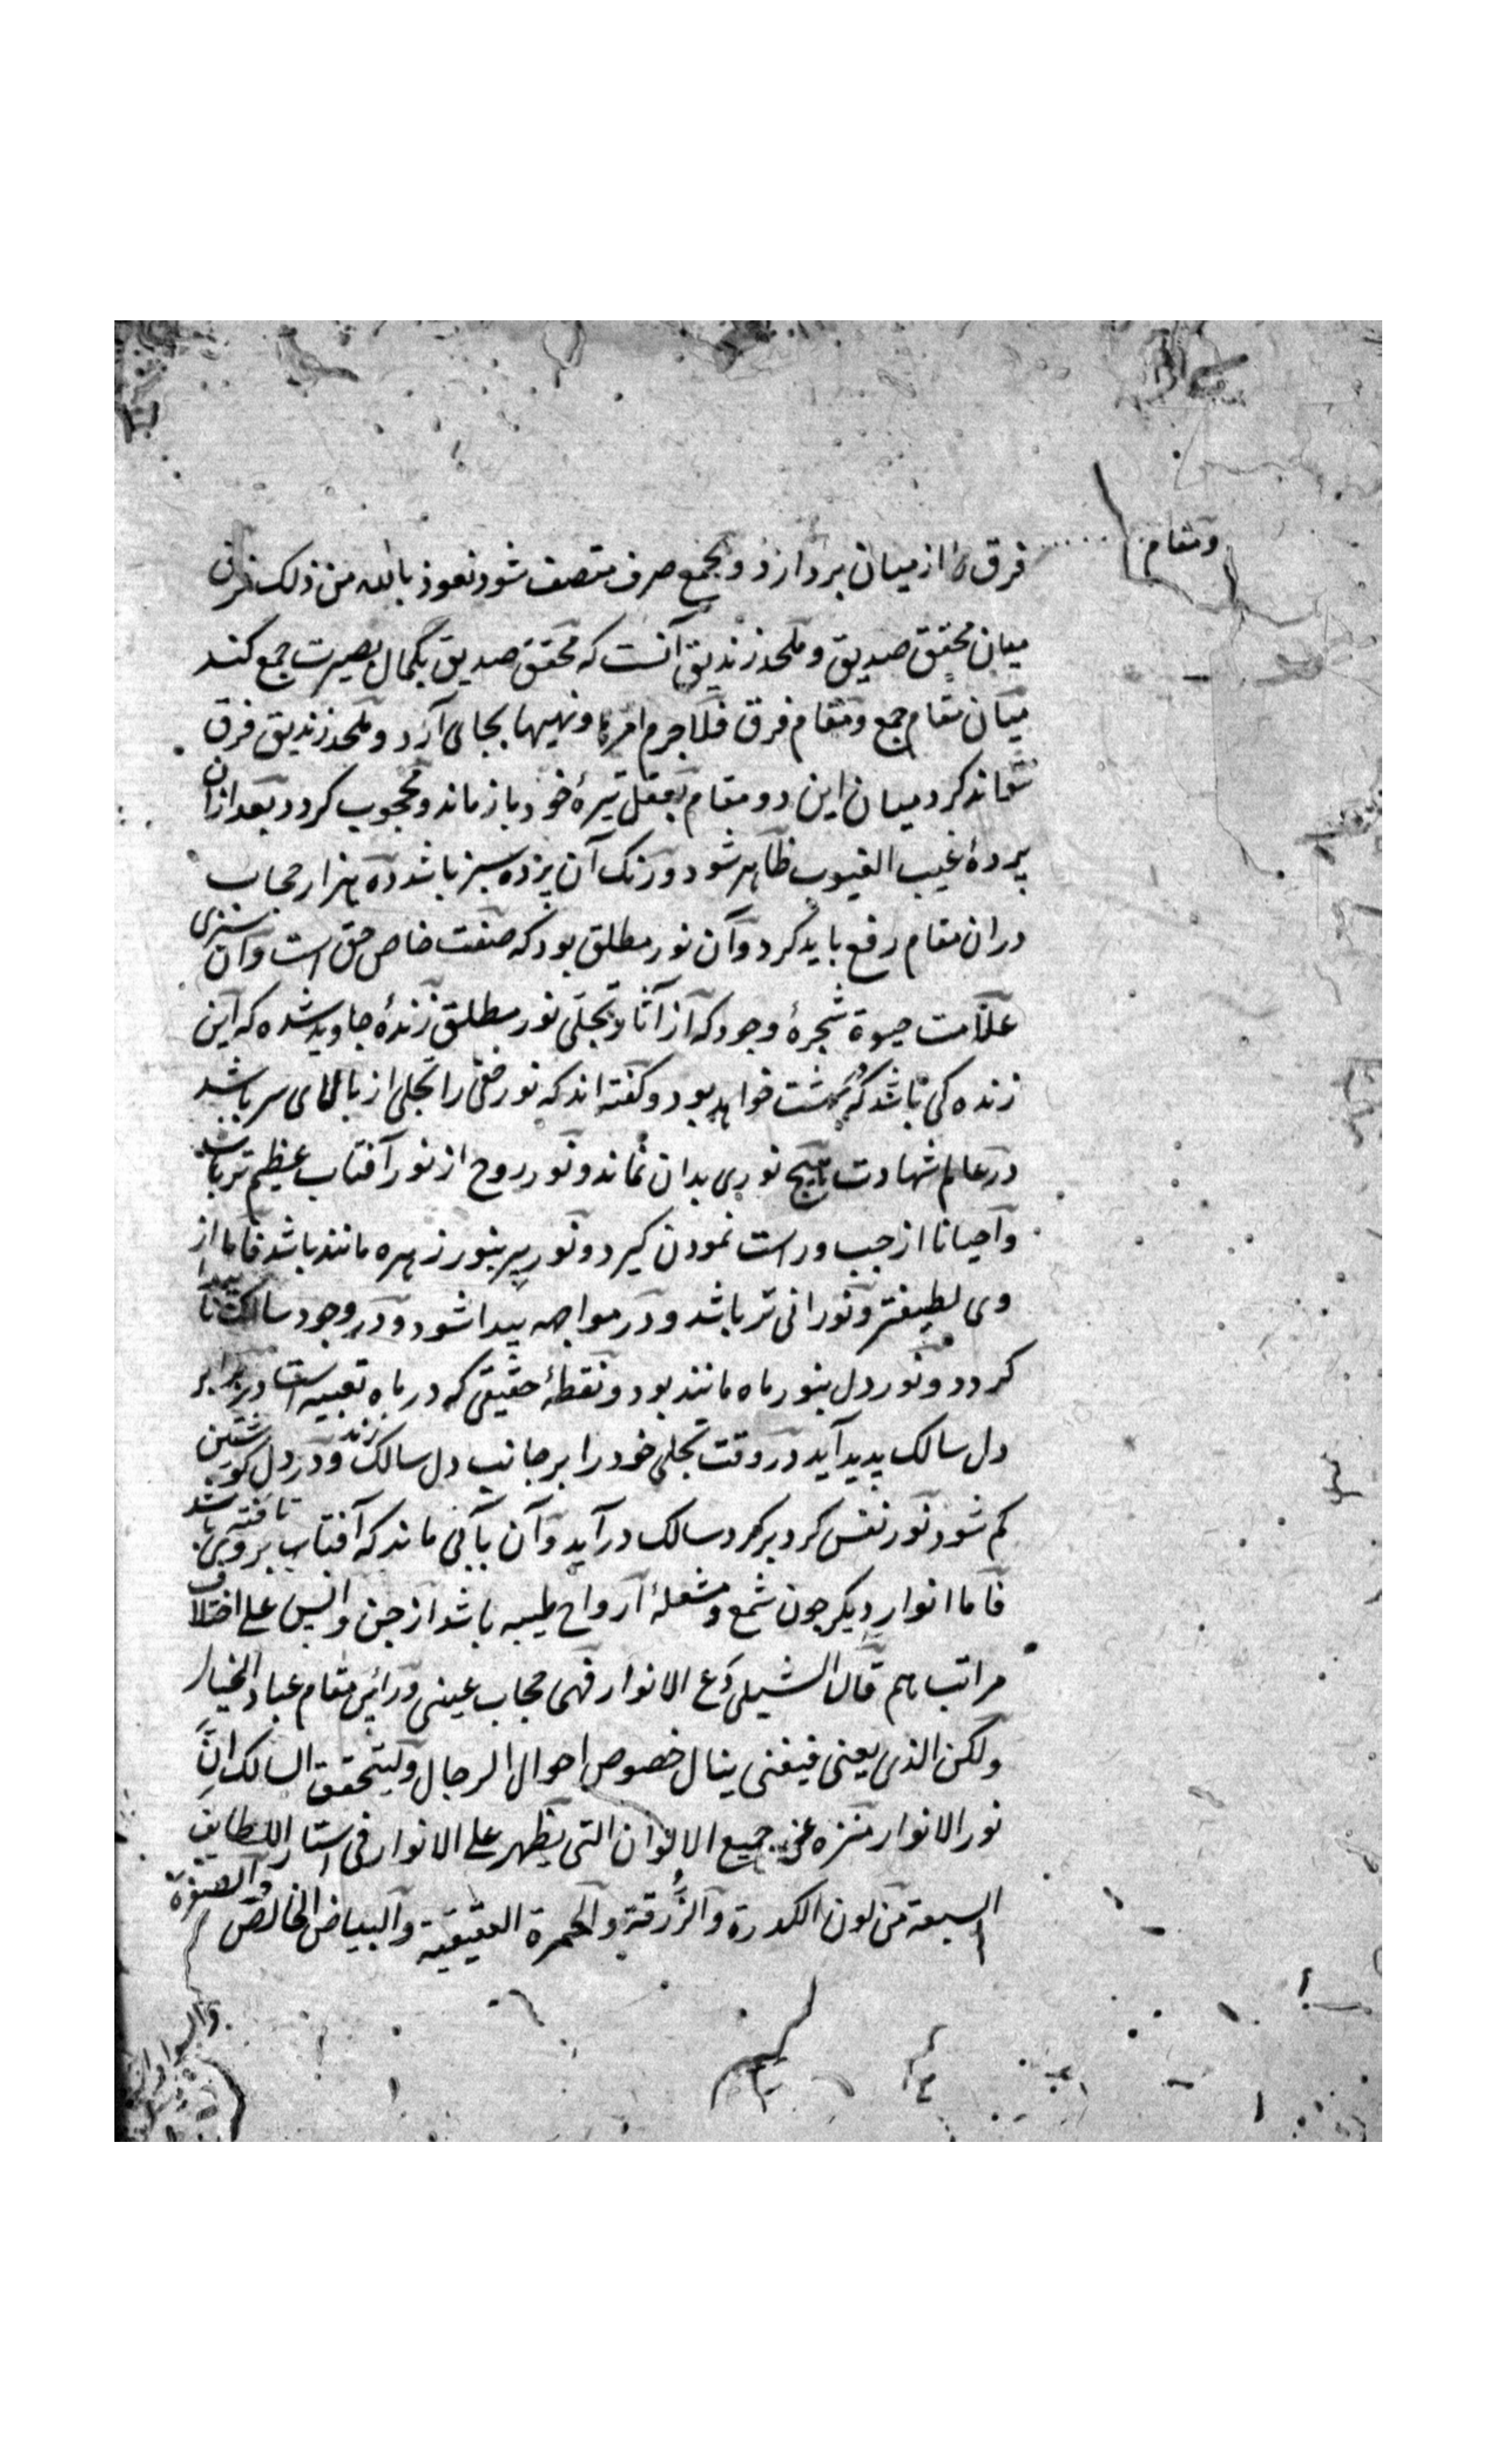 ومقام
فرق را از میان بردارد و بجمع صرف متصف شود نعوذ بالله من ذلک فرق
میان محقق صدیق و ملحد زندیق آنست که محقق صدیق بکمال بصیرت جمع کند
میان مقام جمع و مقام فرق فلاجرم امرها و نهیها بجای آرد و ملحد زندیق فرق
نتواند کرد میان این دو مقام بعقل تیرهٔ خود باز ماند و محجوب کردد بعد ازان
پردهٔ غیب الغیوب ظاهر شود و رنک آن پرده سبز باشد ده هزار حجاب
دران مقام رفع باید کرد و آن نور مطلق بود که صفت خاص حق است و آن سبزی
علامت حیوة شجرهٔ وجود که از آثار تجلی نور مطلق زندهٔ جاوید شده که این
زنده کی باشد که بهشت خواهد بود و کفته اند که نور حق را تجلی از بالای سر باشد
در عالم شهادت هیچ نوری بدان نماند و نور روح از نور آفتاب عظیم تر باشد
و احیانا از جب و راست نمودن کیرد و نور پیر بنور زهره مانند باشد فاما از
وی لطیفتر و نورانی تر باشد و در مواجهه پیدا شود و در وجود سالک نا پیدا
کردد و نور دل بنور ماه مانند بود و نقطهٔ حقیقی که در ماه تعبیه است در برابر
دل سالک پدید آید در وقت تجلی خود را بر جانب دل سالک زند و در دل کوشتین
کم شود نور نفس کرد بر کرد سالک درآید و آن بآبی ماند که آفتاب بر وی تافته باشد
فاما انوار دیکر جون شمع و مشعلهٔ ارواح طیبه باشد از جن و انس علی اختلاف
مراتب‌هم قال الشبلی دع الانوار فهی حجاب عینی ورائی مقام عباد الخیار
ولکن الذی یعنی فیفنی ینال خصوص احوال الرجال ولیتحقق السالک ان
نور الانوار منزه عن جمیع الالوان التی یظهر علی الانوار فی استار اللطایف
السبعة من لون الکدرة والزرقة والحمرة العقیقیة والبیاض الخالص والصفرة